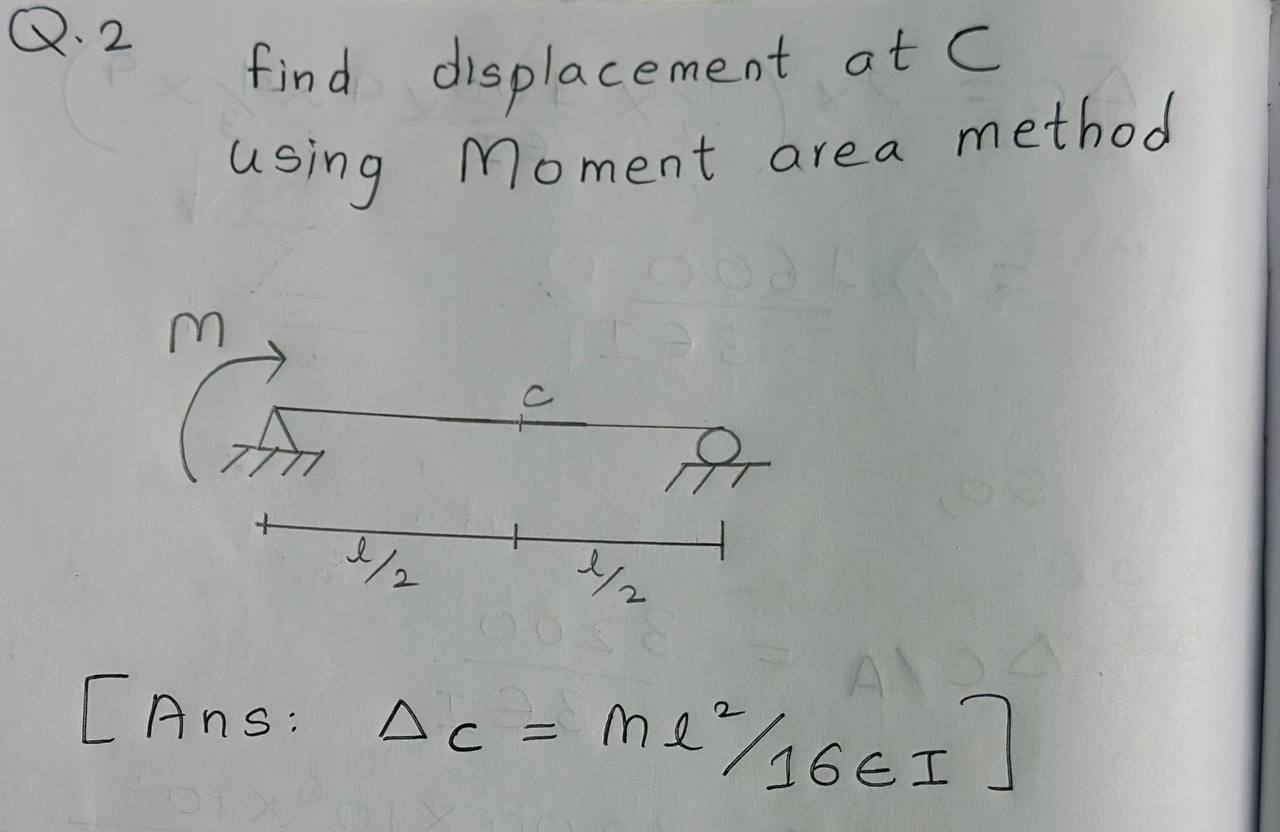 Q.2 find displacement at C
using Moment area method
M
C
l/2 l/2
[Ans: Δc = Ml²/16EI]